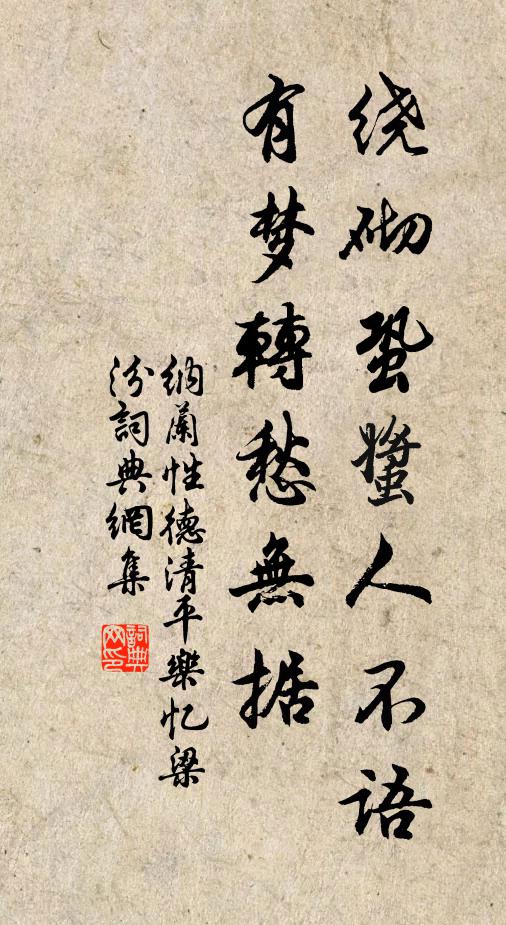 绕砌蛩螿人不语
有梦轉愁無据
纳蘭性德清平樂忆梁
汾詞典網集
詞典
网印